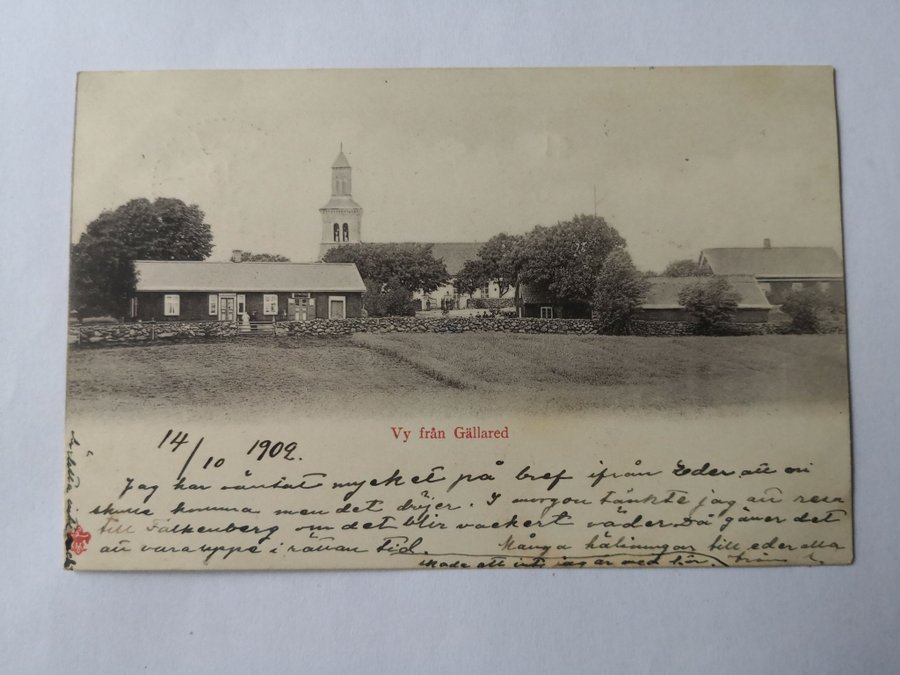 Vy från Gällared
14/10 1902.
Jag har väntat mycket på bref ifrån Eder att ni
skulle komma men det dröjer. I morgon tänkte jag att resa
till Falkenberg om det blir vackert väder. Då gäner det
att vara uppe i rättan Tid. Många hälsningar till eder alla
skade att inte jag är med här.